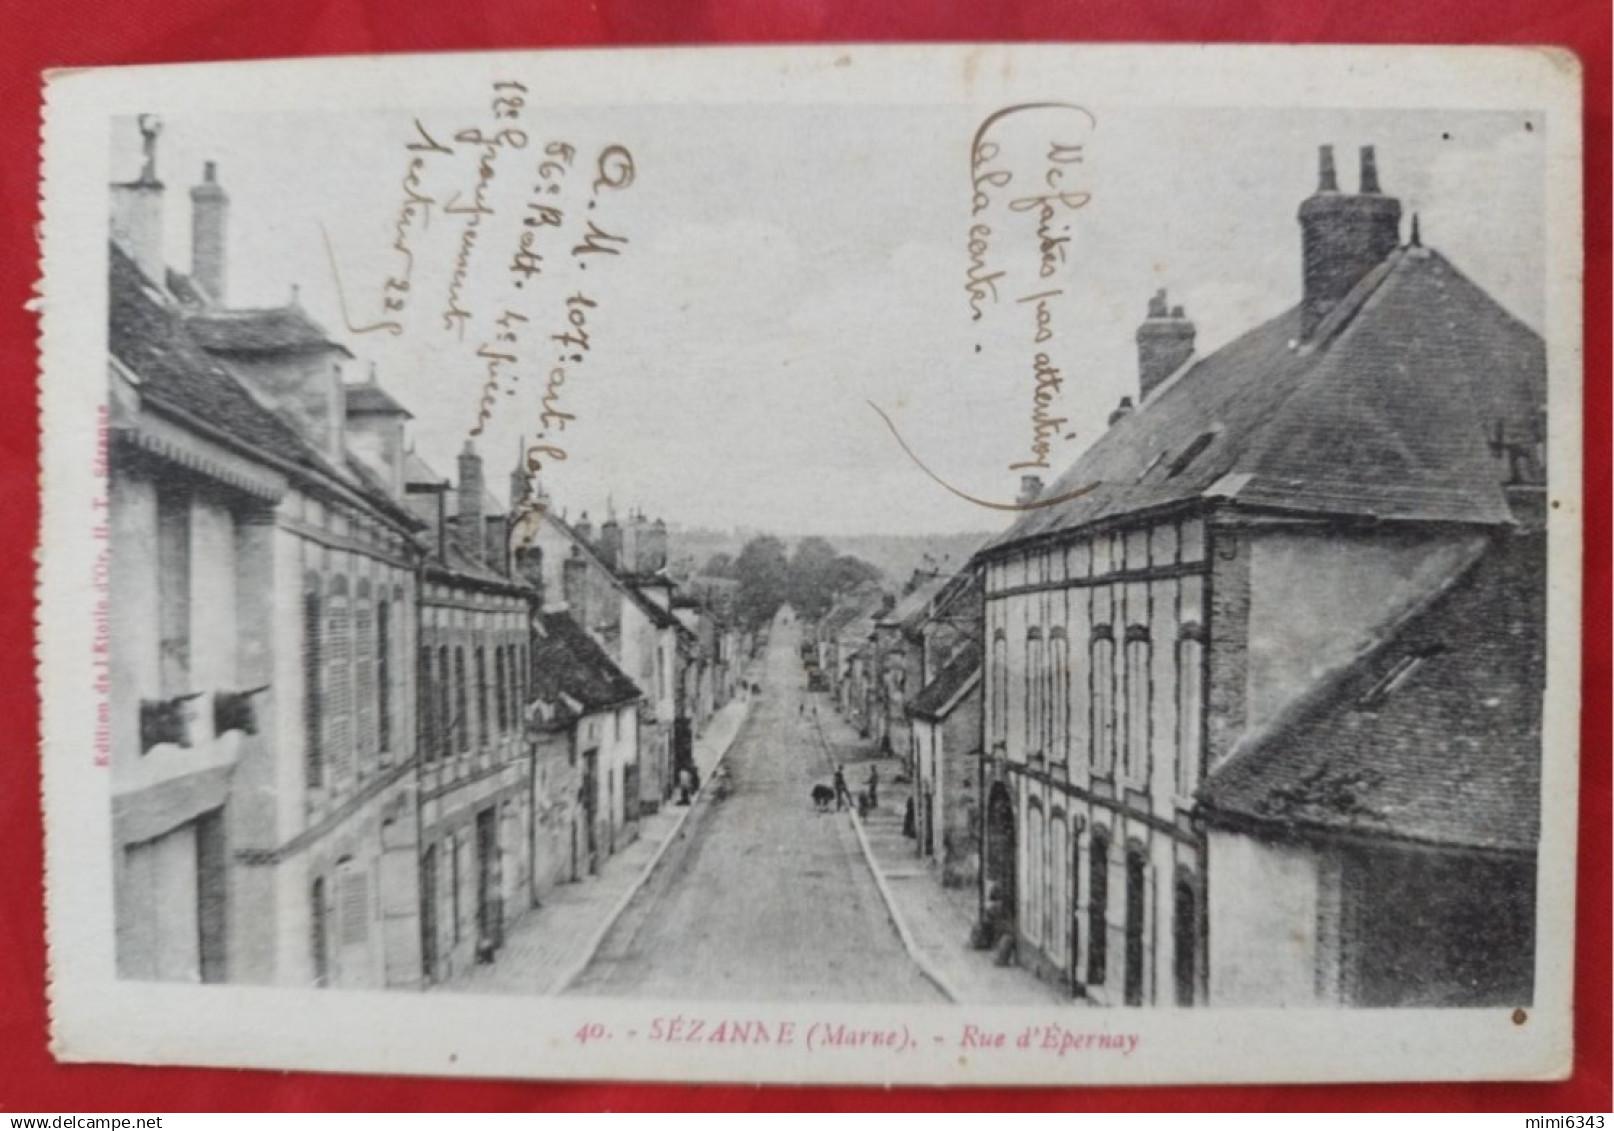 A. M. 107e art. lourde
86e Batt. 4e pièce
12e groupement
secteur 225
Ne faites pas attention
a la carte.
Edition de l'Etoile d'Or, H. T., Sézanne
40. - SÉZANNE (Marne). - Rue d'Épernay
mimi6343